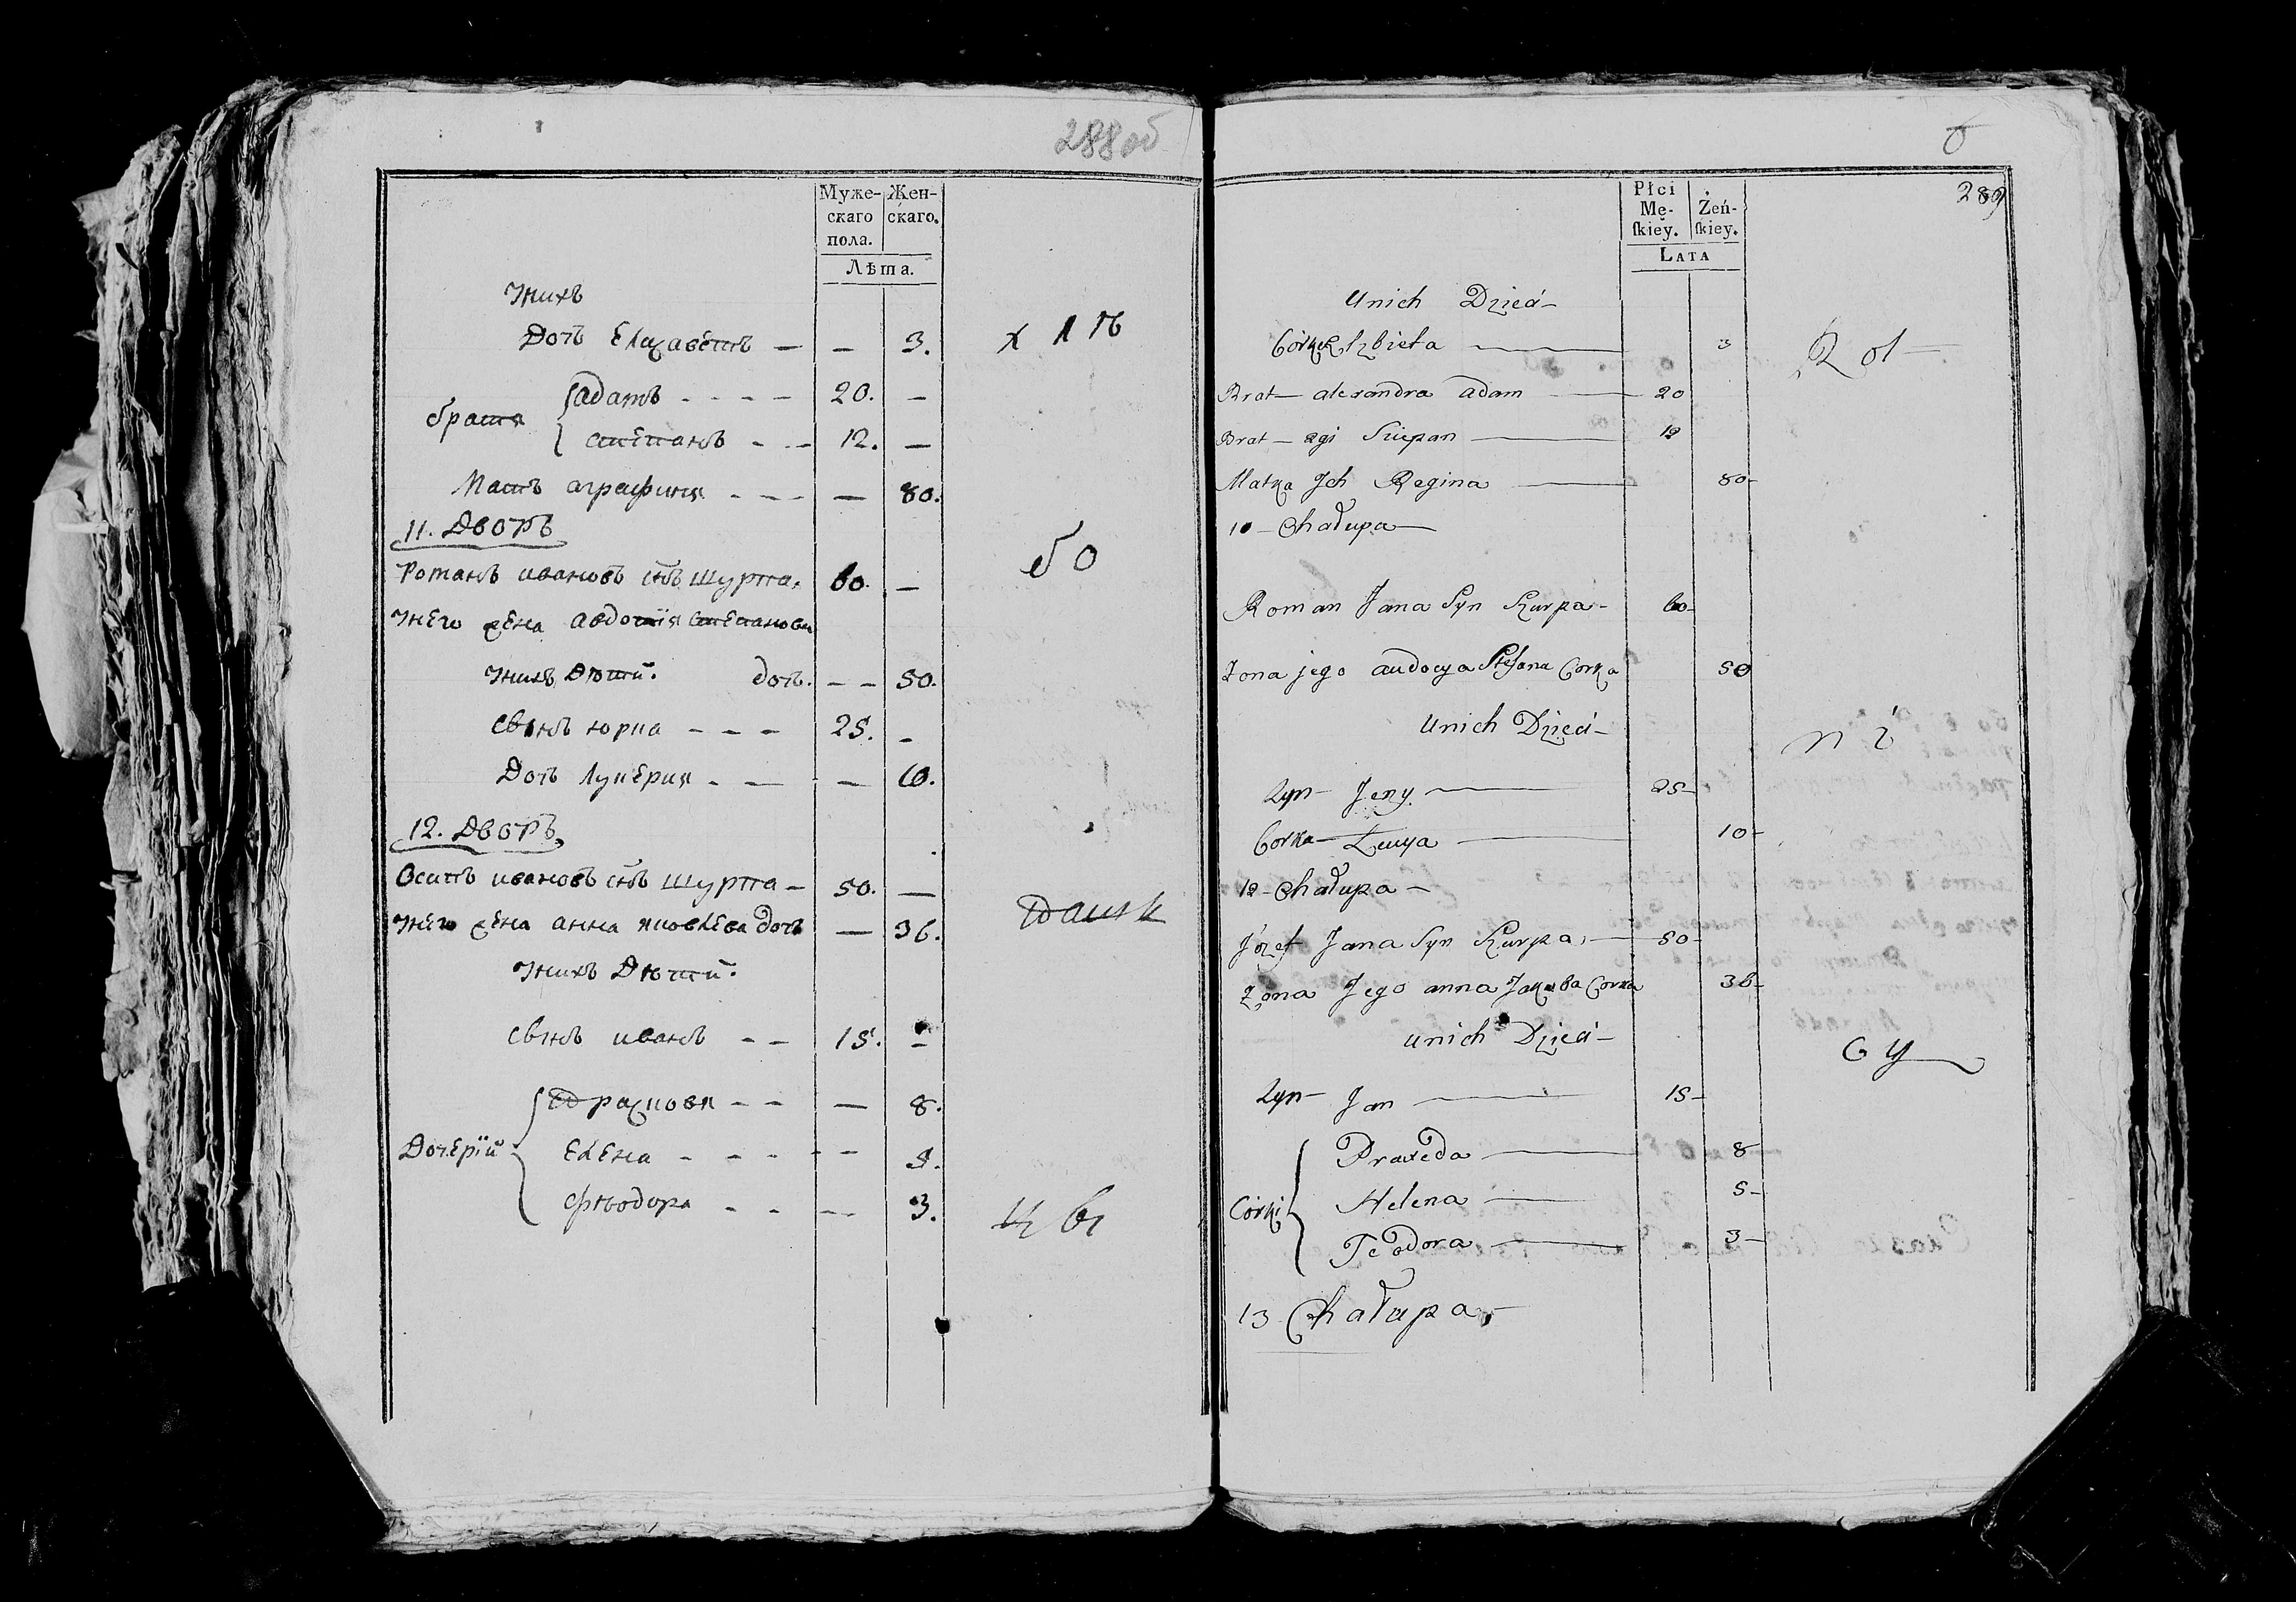 288 об
Муже- Жен-
скаго скаго.
пола.
Лѣта.
У нихъ
Дочь Елизаветъ — — 3.
братя { адамъ - - - - 20. —
степанъ - - - 12. —
Мать аграфина - - - — 80.
11. Дворъ
Романъ ивановъ снъ шурпа. 60. —
У него жена авдотїя степанова
У нихъ Дѣти. дочь. - - 50.
Сынъ юрка - - - 25. -
Дочь Лукерия - — — 10.
12. Дворъ
Осипъ ивановъ снъ шурпа - 50. —
У него жена анна яковлева дочь — 36.
У нихъ Дѣти.
Сынъ иванъ - - 15. -
Дочерїи { - - — 8.
Елена - - - - - 5.
Фѣодора - - - - 3.
6
289
Płci
Mę- Żeń-
ſkiey. ſkiey.
LATA
Unich Dzieci -
Córka Elzbieta — 3
Brat — alexandra adam — 20
Brat — Sciepan — 12
Matka Jch Regina — 80-
10 - Chałupa —
Roman Jana Syn Szurpa - 60-
Zona jego audocya Stefana Corka 50
Unich Dzieci -
Syn — Jerzy — 25-
Corka — — 10-
12 - Chałupa -
Józef Jana Syn Szurpa, — 50-
Zona Jego anna Jakuba Corka 36-
unich Dzieci -
Syn — Jan — 15-
Córki { Praxeda — 8
Helena — 5-
Teodora — 3-
13 Chałupa,-